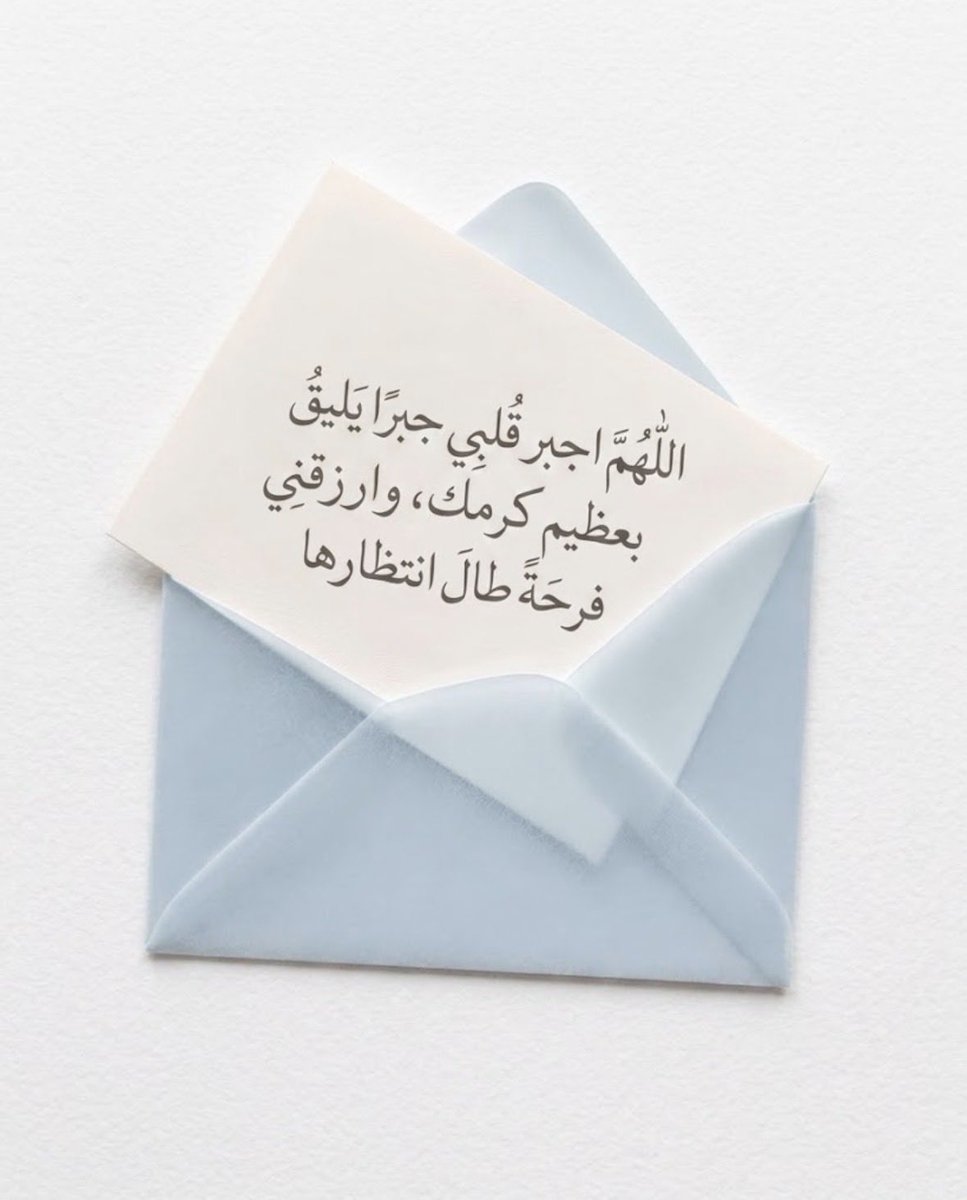 اللّٰهُمَّ اجبر قُلبِي جبرًا يَليقُ
بعظيم كرمك، وارزقنِي
فرحَةً طالَ انتظارها